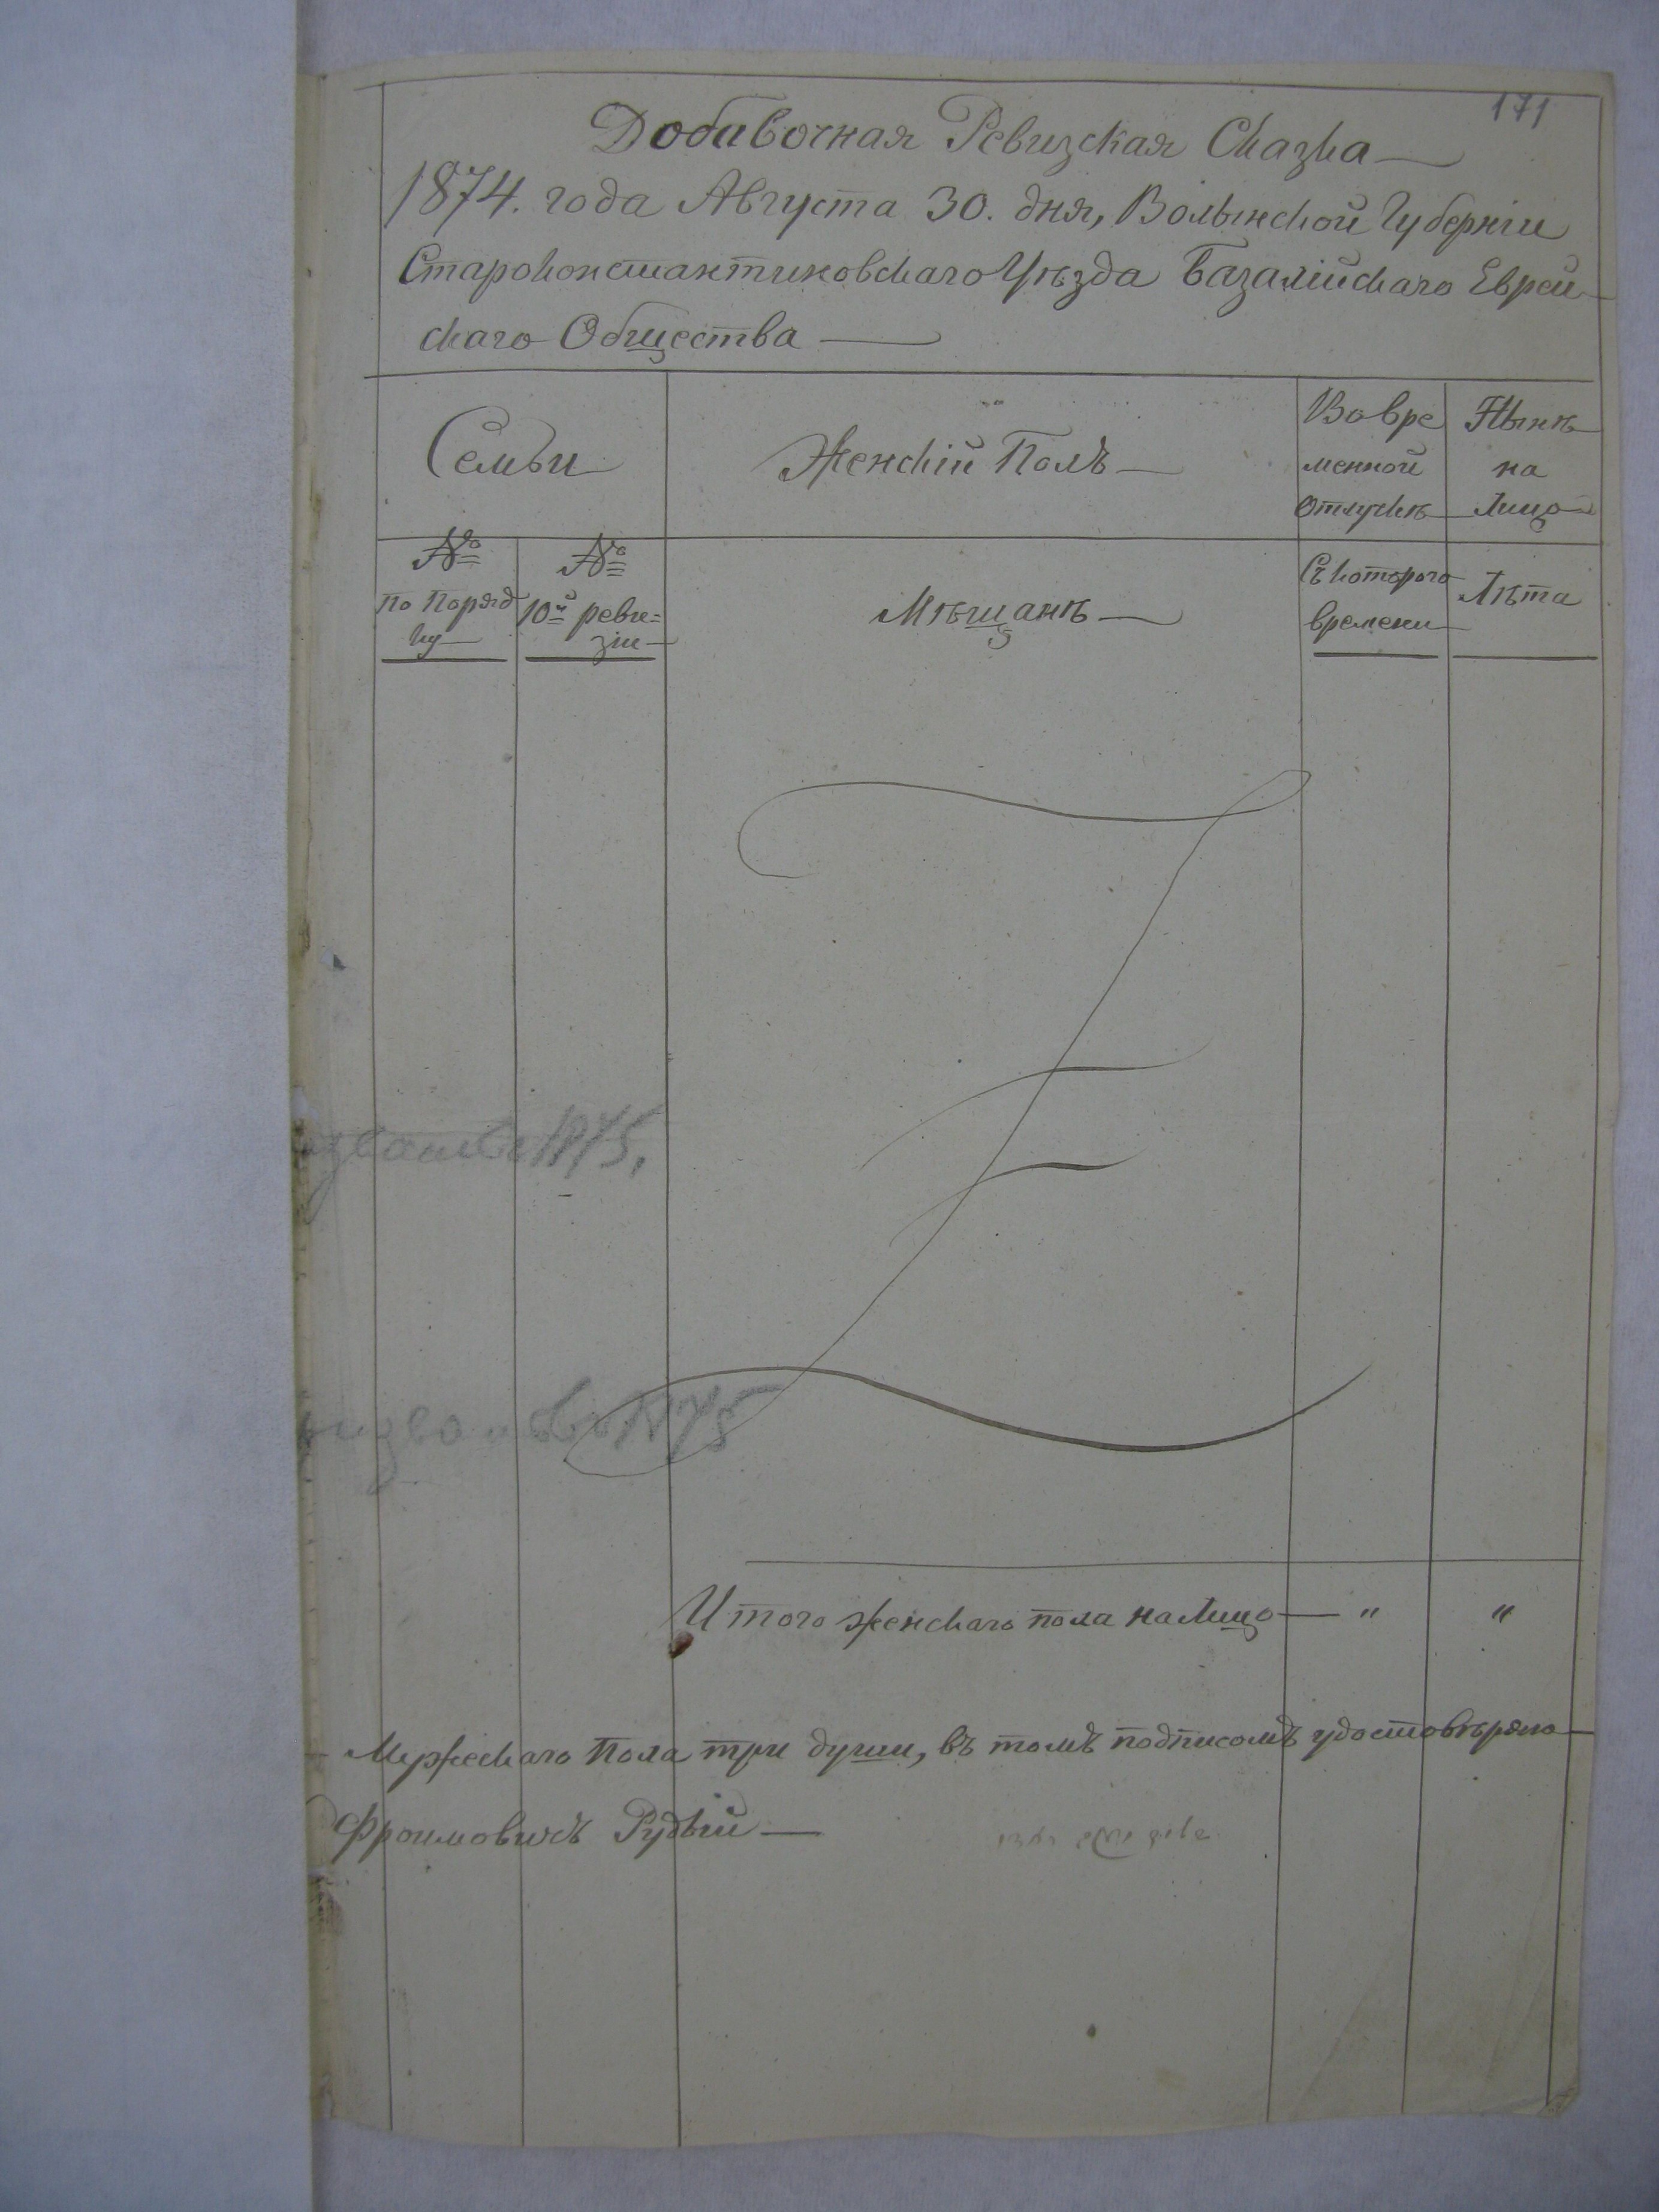 171
Добавочная Ревизская Сказка
1874. года Августа 30. дня, Волынской Губерніи
Староконстантиновскаго Уѣзда Базалійскаго Еврей-
скаго Общества
Семьи
Женскій Полъ
Во вре
менной
отлучкѣ
Нынѣ
на
Лицо
№
По Поряд
ку
№
10й реви=
зіи
Мѣщанѣ
Съ котораго
времени
Лѣта
1875.
1875
Итого женскаго пола на Лицо — " "
Мужескаго Пола три души, въ томъ подписомъ удостовѣряю
Фроимовичъ Рудый